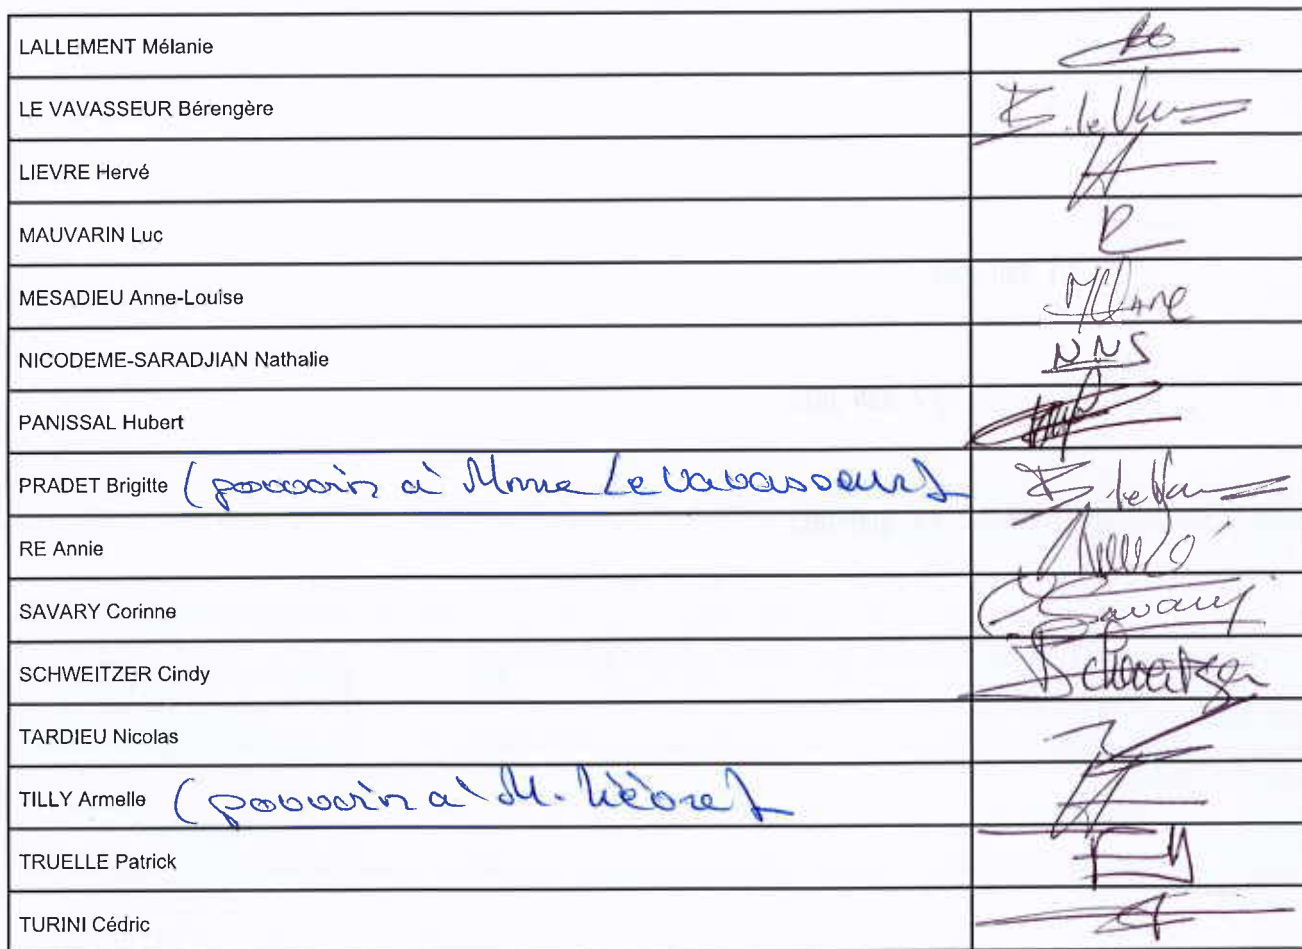 LALLEMENT Mélanie
LE VAVASSEUR Bérengère
B. le Vav
LIEVRE Hervé
MAUVARIN Luc
MESADIEU Anne-Louise
NICODEME-SARADJIAN Nathalie
NNS
PANISSAL Hubert
PRADET Brigitte (pouvoir à Mme Le Vavasseur)
B. le Vav
RE Annie
SAVARY Corinne
Savary
SCHWEITZER Cindy
Schweitzer
TARDIEU Nicolas
TILLY Armelle (pouvoir à M. Lièvre)
TRUELLE Patrick
TURINI Cédric